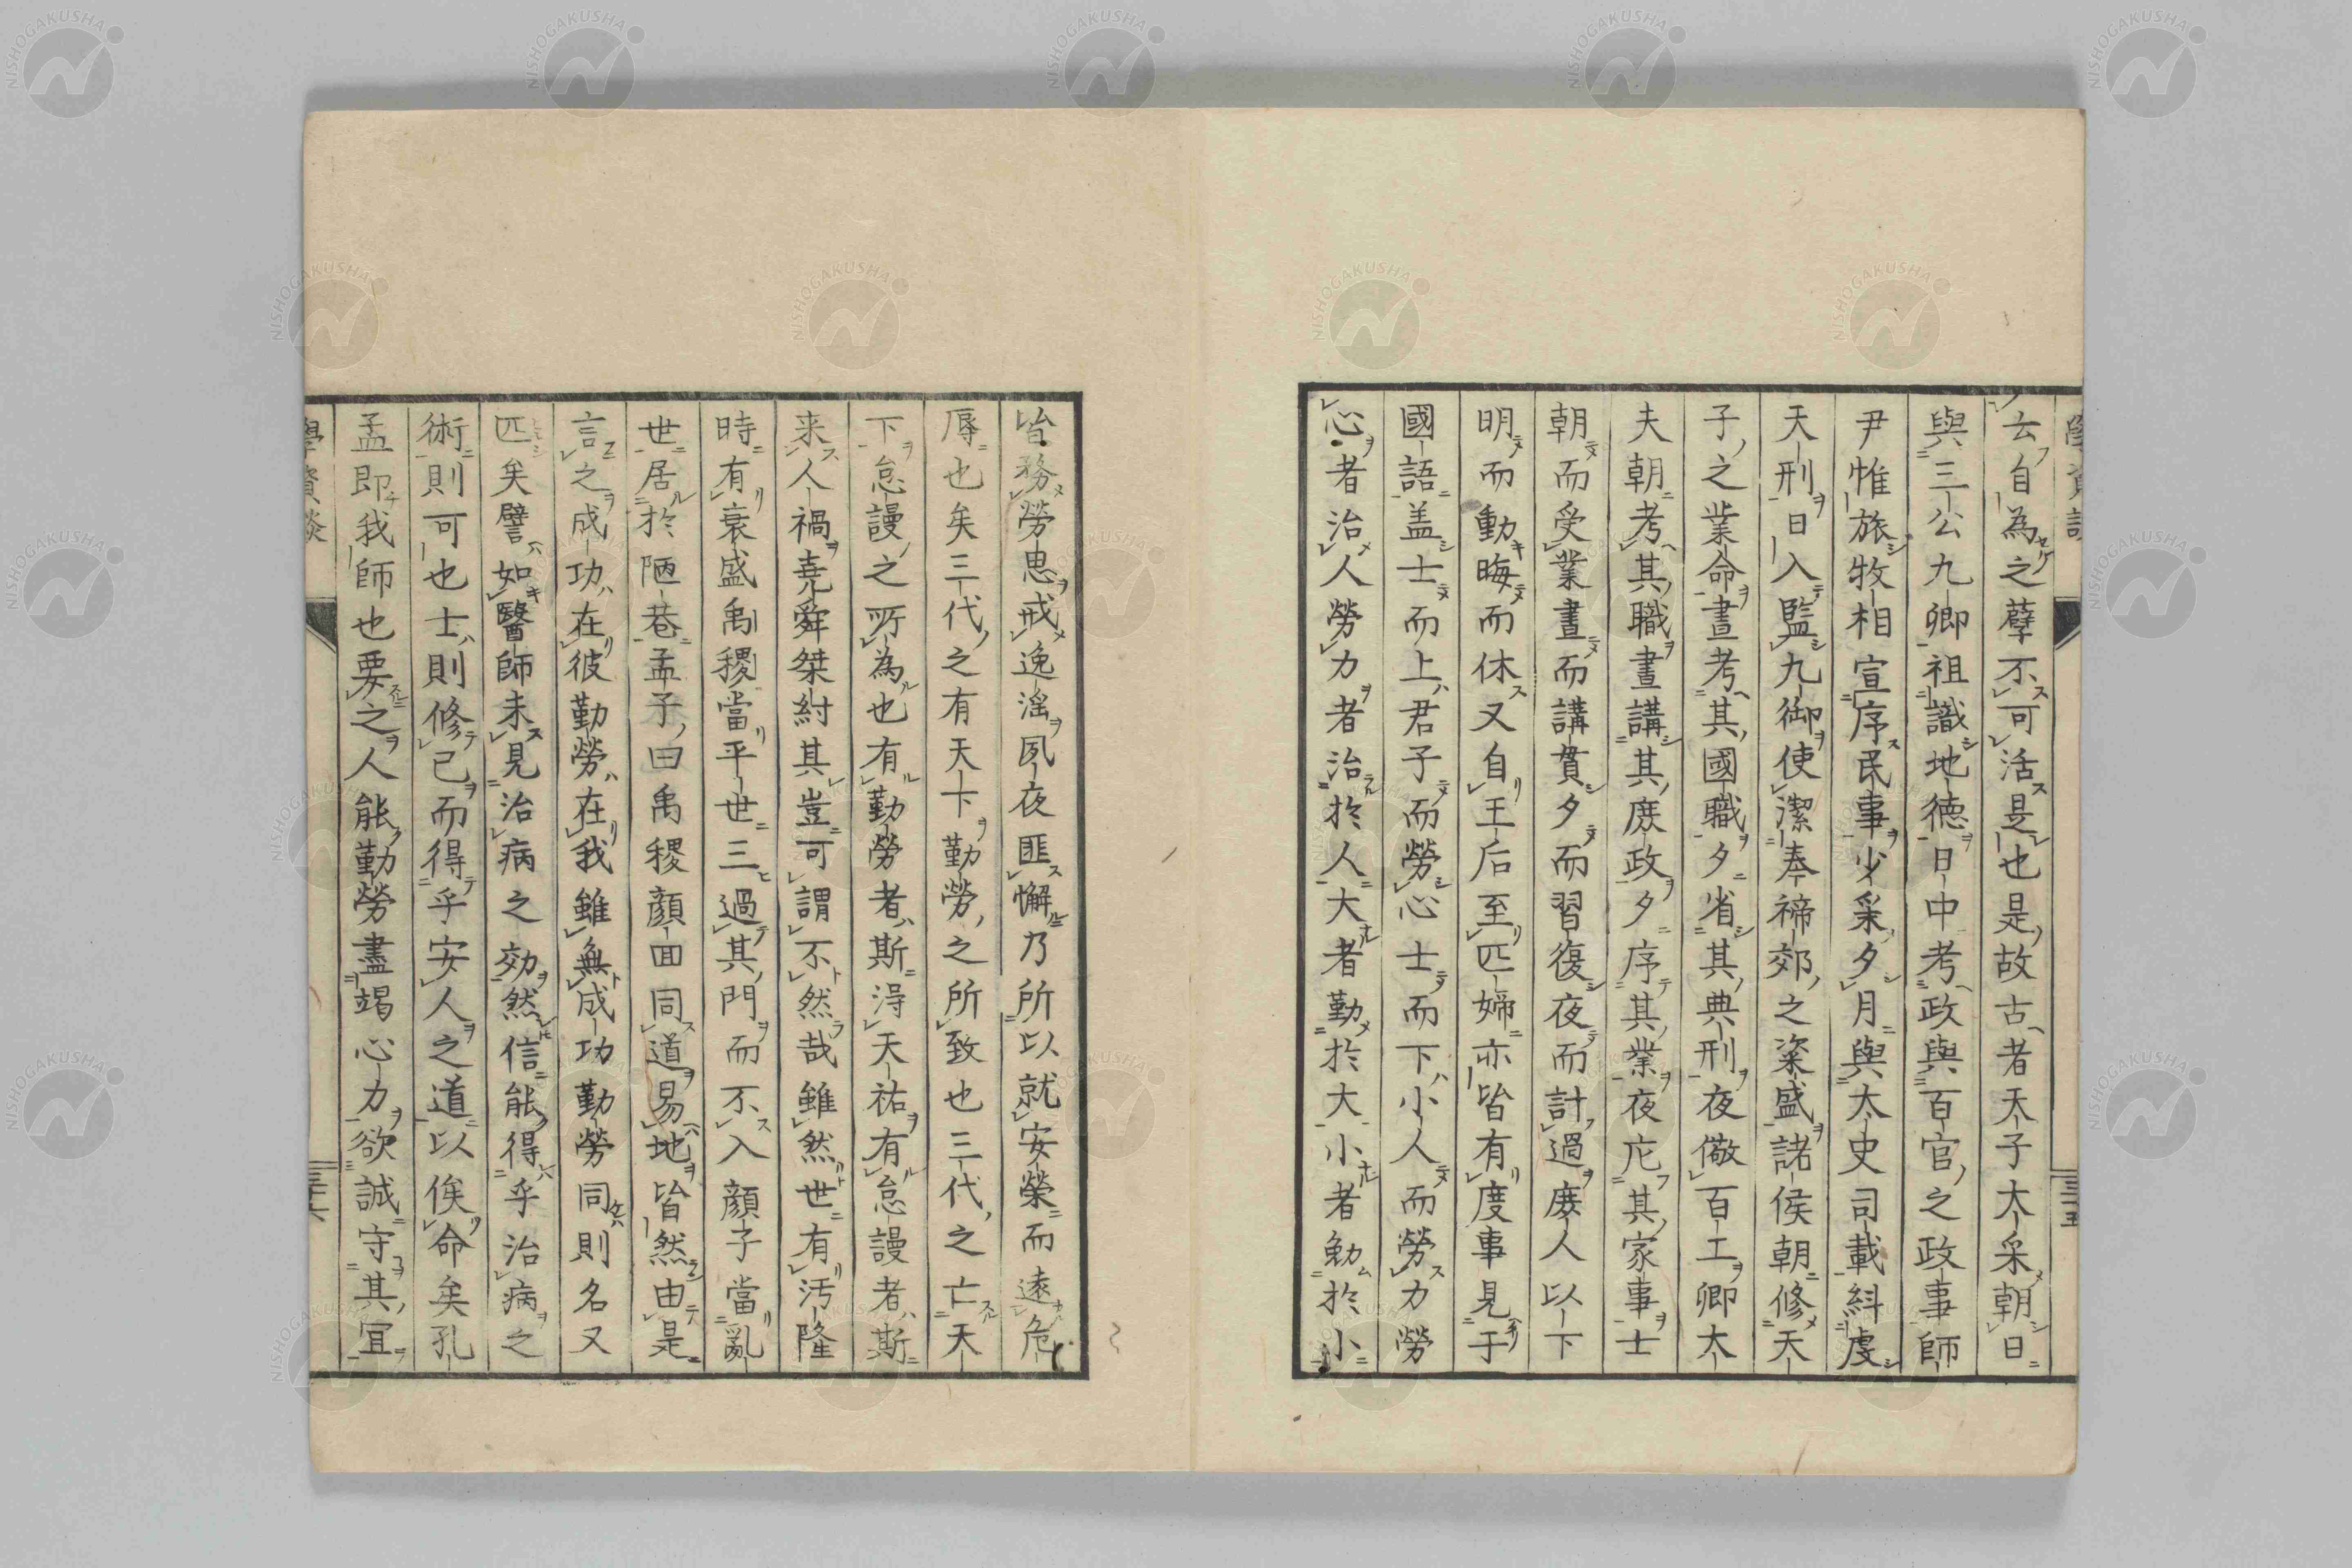 云自為之孽不可活是也是故古者天子大采朝日
與三公九卿祖識地德日中考政與百官之政事師
尹惟旅牧相宣序民事少采夕月與大史司載糾虔
天刑日入監九御使潔奉禘郊之粢盛諸侯朝修天
子之業命晝考其國職夕省其典刑夜儆百工卿大
夫朝考其職晝講其庶政夕序其業夜庀其家事士
朝而受業晝而講貫夕而習復夜而計過庶人以下
明而動晦而休又自王后至匹婦亦皆有度事見于
國語盖士而上君子而勞心士而下小人而勞力勞
心者治人勞力者治於人大者勤於大小者勉於小
皆務勞思戒逸滛夙夜匪懈乃所以就安榮而遠危
辱也矣三代之有天下勤勞之所致也三代之亡天
下怠謾之所為也有勤勞者斯淂天祐有怠謾者斯
来人禍堯舜桀紂其豈可謂不然哉雖然世有汚隆
時有衰盛禹稷當平世三過其門而不入顔子當亂
世居於陋巷孟子曰禹稷顔囬同道易地皆然由是
言之成功在彼勤勞在我雖無成功勤勞同則名又
匹矣譬如醫師未見治病之効然信能得乎治病之
術則可也士則修己而得乎安人之道以俟命矣孔
孟即我師也要之人能勤勞盡竭心力欲誠守其冝
學資談
三十五
三十六
NISHOGAKUSHA